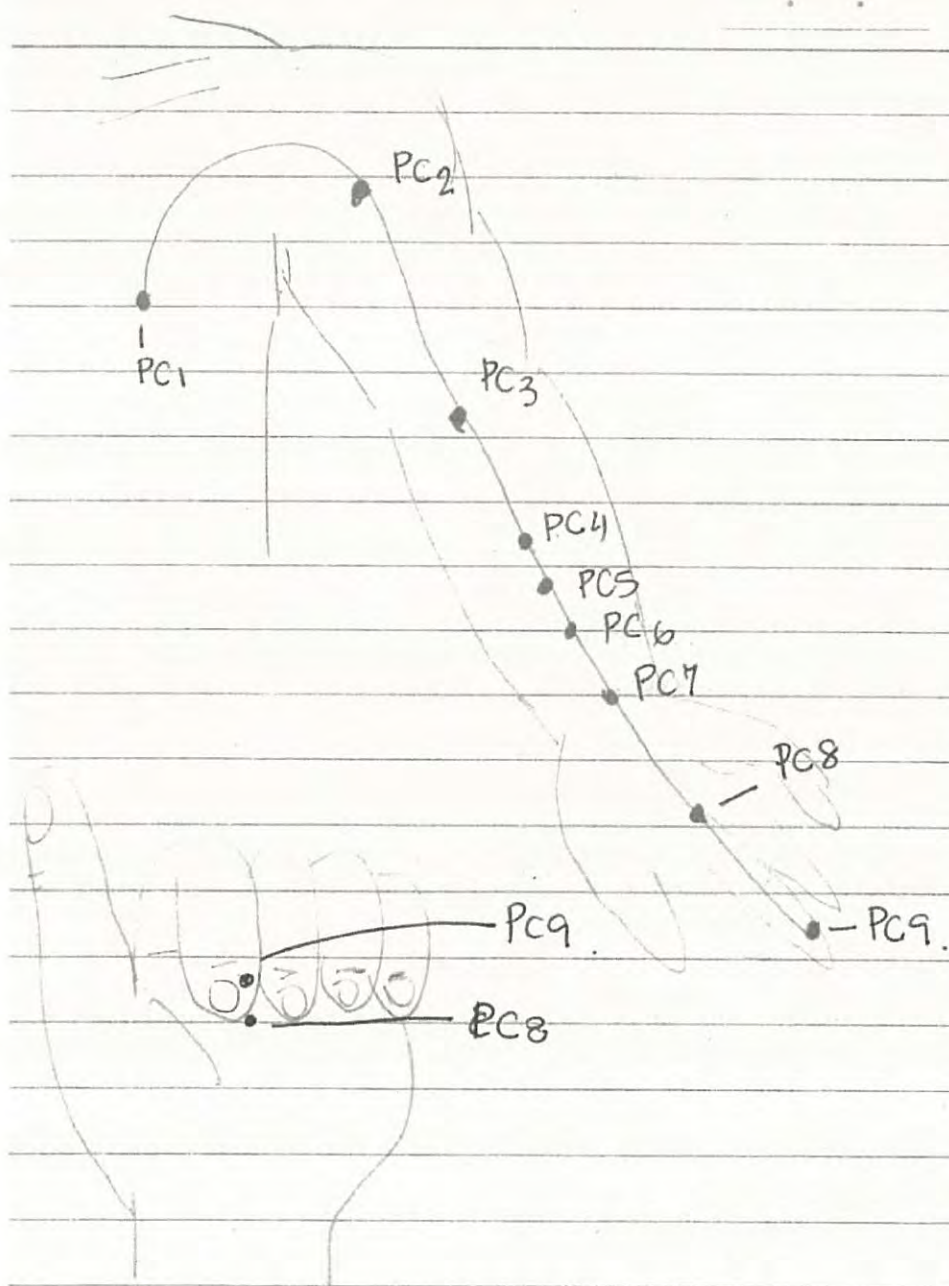 PC2
PC1
PC3
PC4
PC5
PC6
PC7
PC8
PC9.
PC9.
PC8